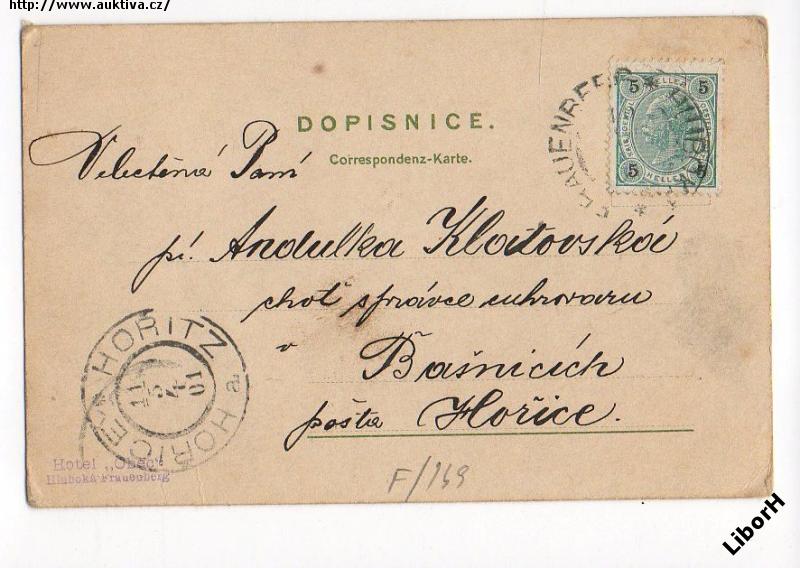 http://www.auktiva.cz/
DOPISNICE.
Correspondenz-Karte.
5 HELLER 5
5 HELLER 5
FRAUENBERG * HLUBOKÁ *
Velectěná Paní
pí. Andulka Klatovská
choť správce cukrovaru
v Bašnicích
pošta Hořice.
HORITZ
HOŘICE
a.
11
5
01
Hotel „Obec"
Hluboká Frauenberg
F/169
LiborH